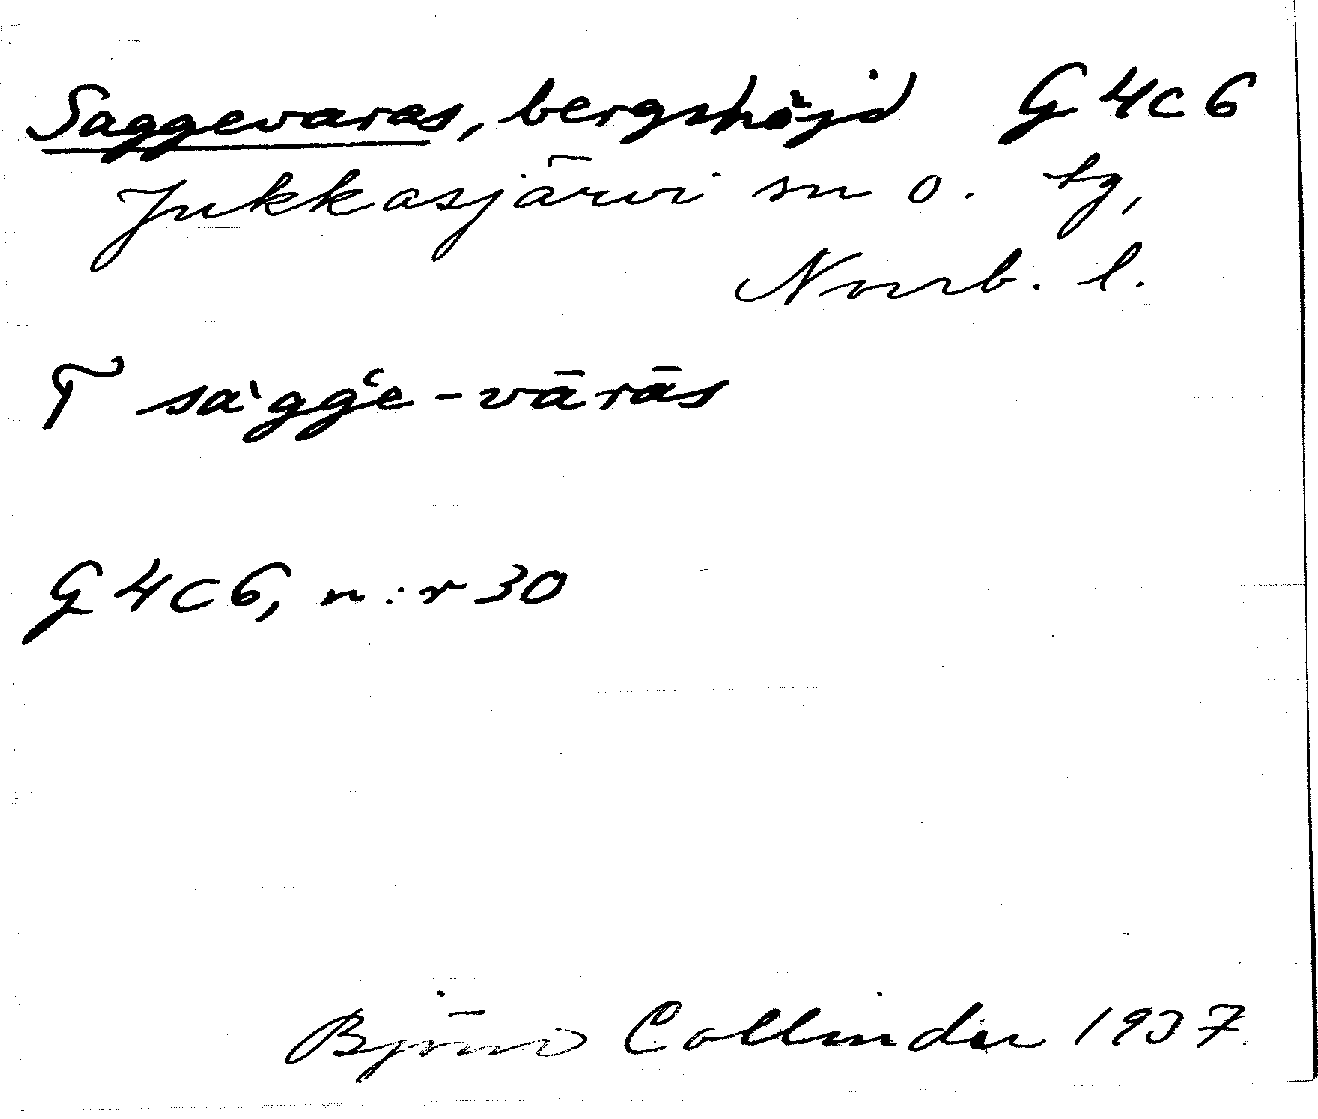 Saggevaras, bergshöjd G 4c6
Jukkasjärvi sn o. tg,
Norrb. l.
T sàgǵe-vārās
G 4c6, n:r 30
Björn Collinder 1937